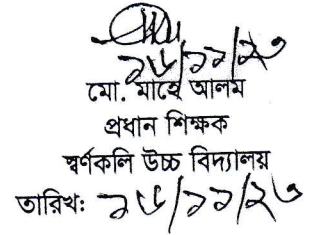 ১৬/১১/২৩
মো. মাহে আলম
প্রধান শিক্ষক
স্বর্ণকলি উচ্চ বিদ্যালয়
তারিখ: ১৬/১১/২৩